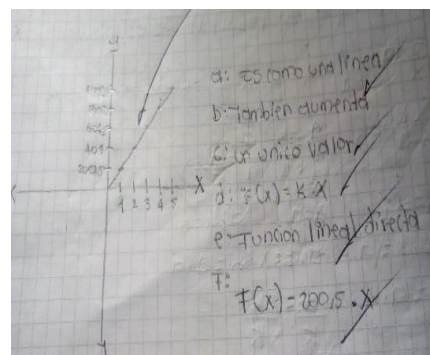 y
401
200,5
X
1 2 3 4 5
a: Es como una linea
b: Tanbien aumenta
c: un unico valor
d: F(x)=K·X
e: Funcion lineal directa
F:
F(x)=200,5·X